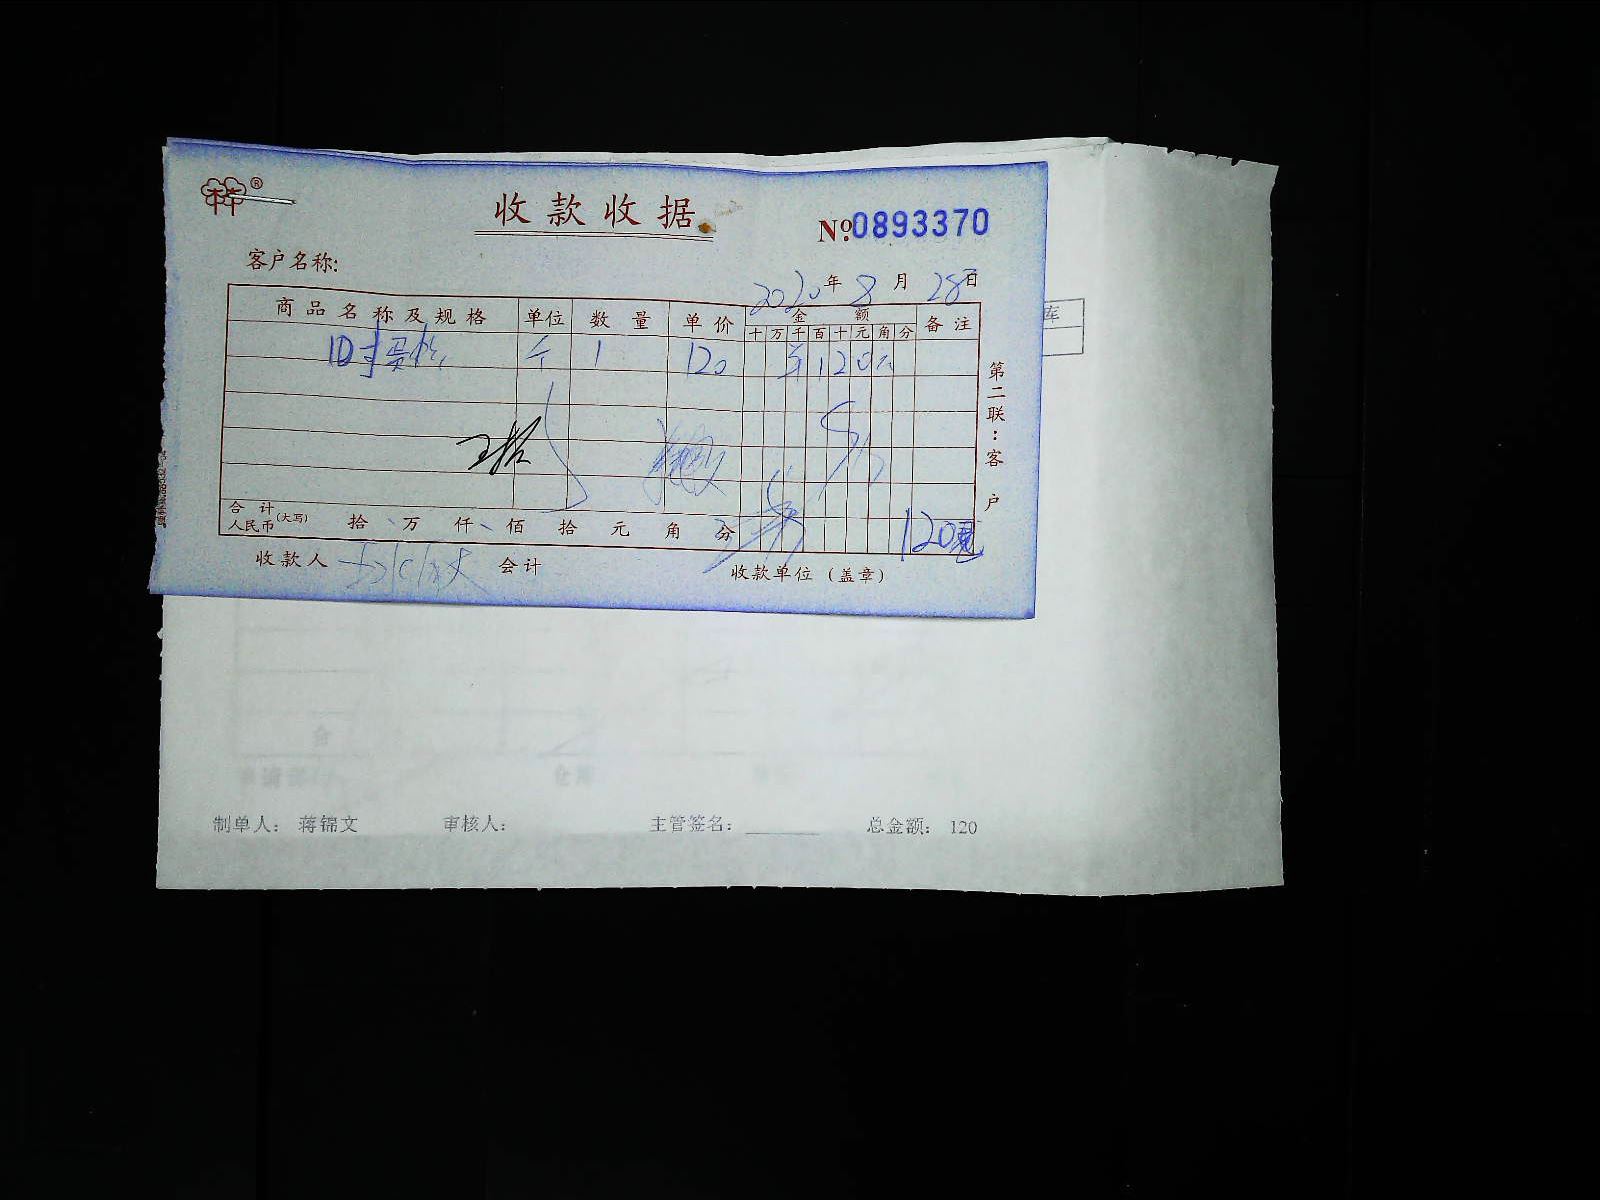 ®
收款收据
№0893370
客户名称:
2020年8月28日
商品名称及规格 单位 数量 单价 金额 备注
十万千百十元角分
个 1 120 120
第二联:客户
合计人民币(大写) 拾 万 仟 佰 拾 元 角 分 120元
收款人 会计 收款单位(盖章)
库
制单人: 蒋锦文 审核人: 主管签名: 总金额: 120